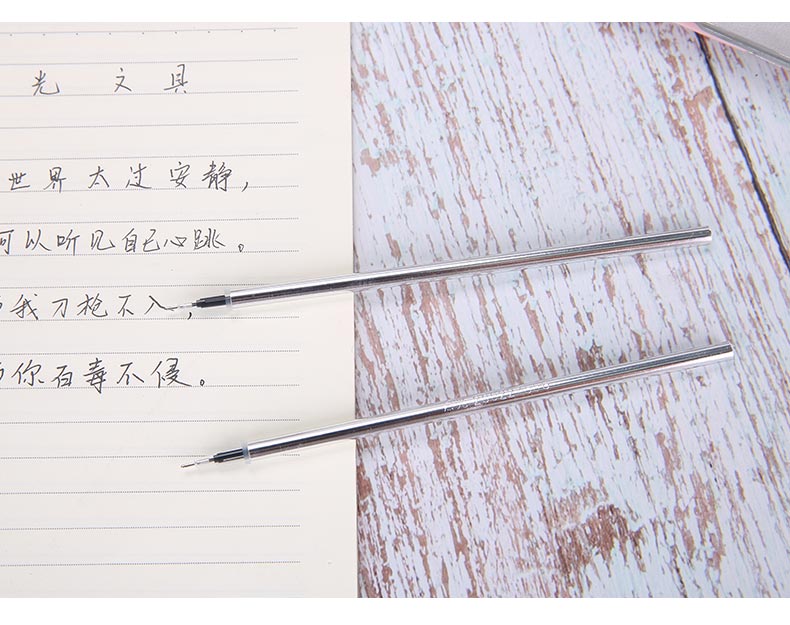 光 文 具
世界太过安静,
可以听见自己心跳。
我刀枪不入,
你百毒不侵。